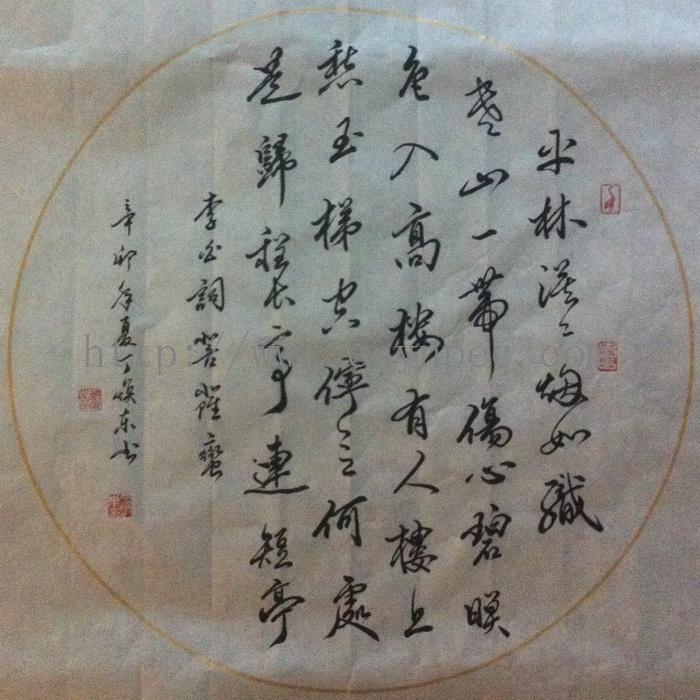 平林漠〻煙如織
寒山一帶傷心碧暝
色入高樓有人樓上
愁玉梯空佇立何處
是歸程長亭連短亭
李白詞菩薩蠻
辛卯年夏丁煥東书